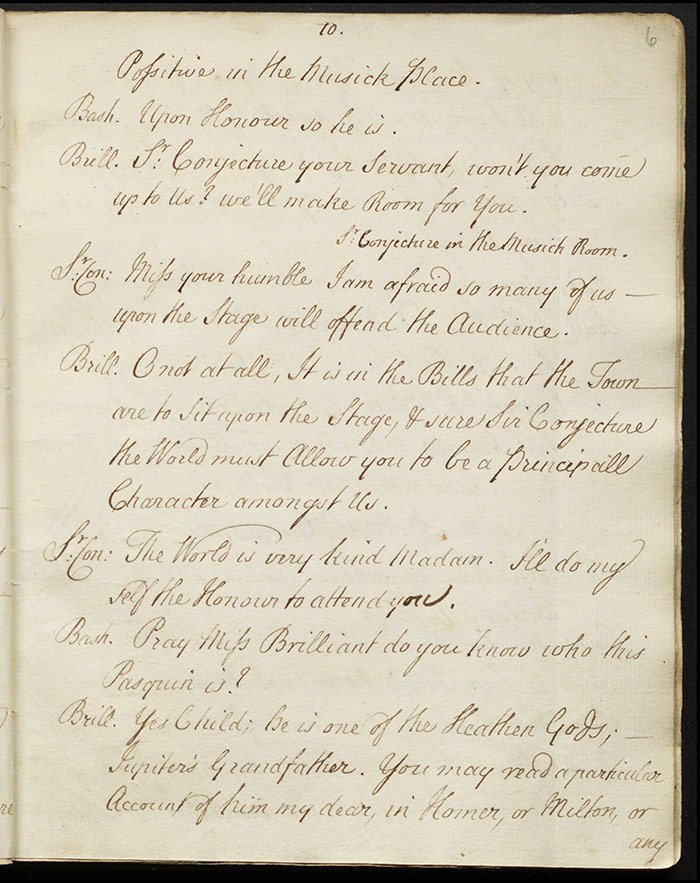 10.
6
Possitive in the Musick place.
Bash. Upon Honour so he is.
Brill. Sr. Conjecture your Servant, won't you come
up to Us? we'll make Room for You.
Sr. Conjecture in the Musick Room.
Sr. Con: Miss your humble I am afraid so many of us —
upon the Stage will offend the Audience.
Brill. O not at all, It is in the Bills that the Town —
are to Sit upon the Stage, & sure Sir Conjecture
the World must Allow you to be a principall
Character amongst Us.
Sr. Con: The World is very kind Madam. I'll do my
self the Honour to attend you.
Bash. Pray Miss Brilliant do you know who this
Pasquin is?
Brill. Yes Child; he is one of the Heathen Gods; —
Jupiter's Grandfather. You may read a particular
Account of him my dear, in Homer, or Milton, or
any